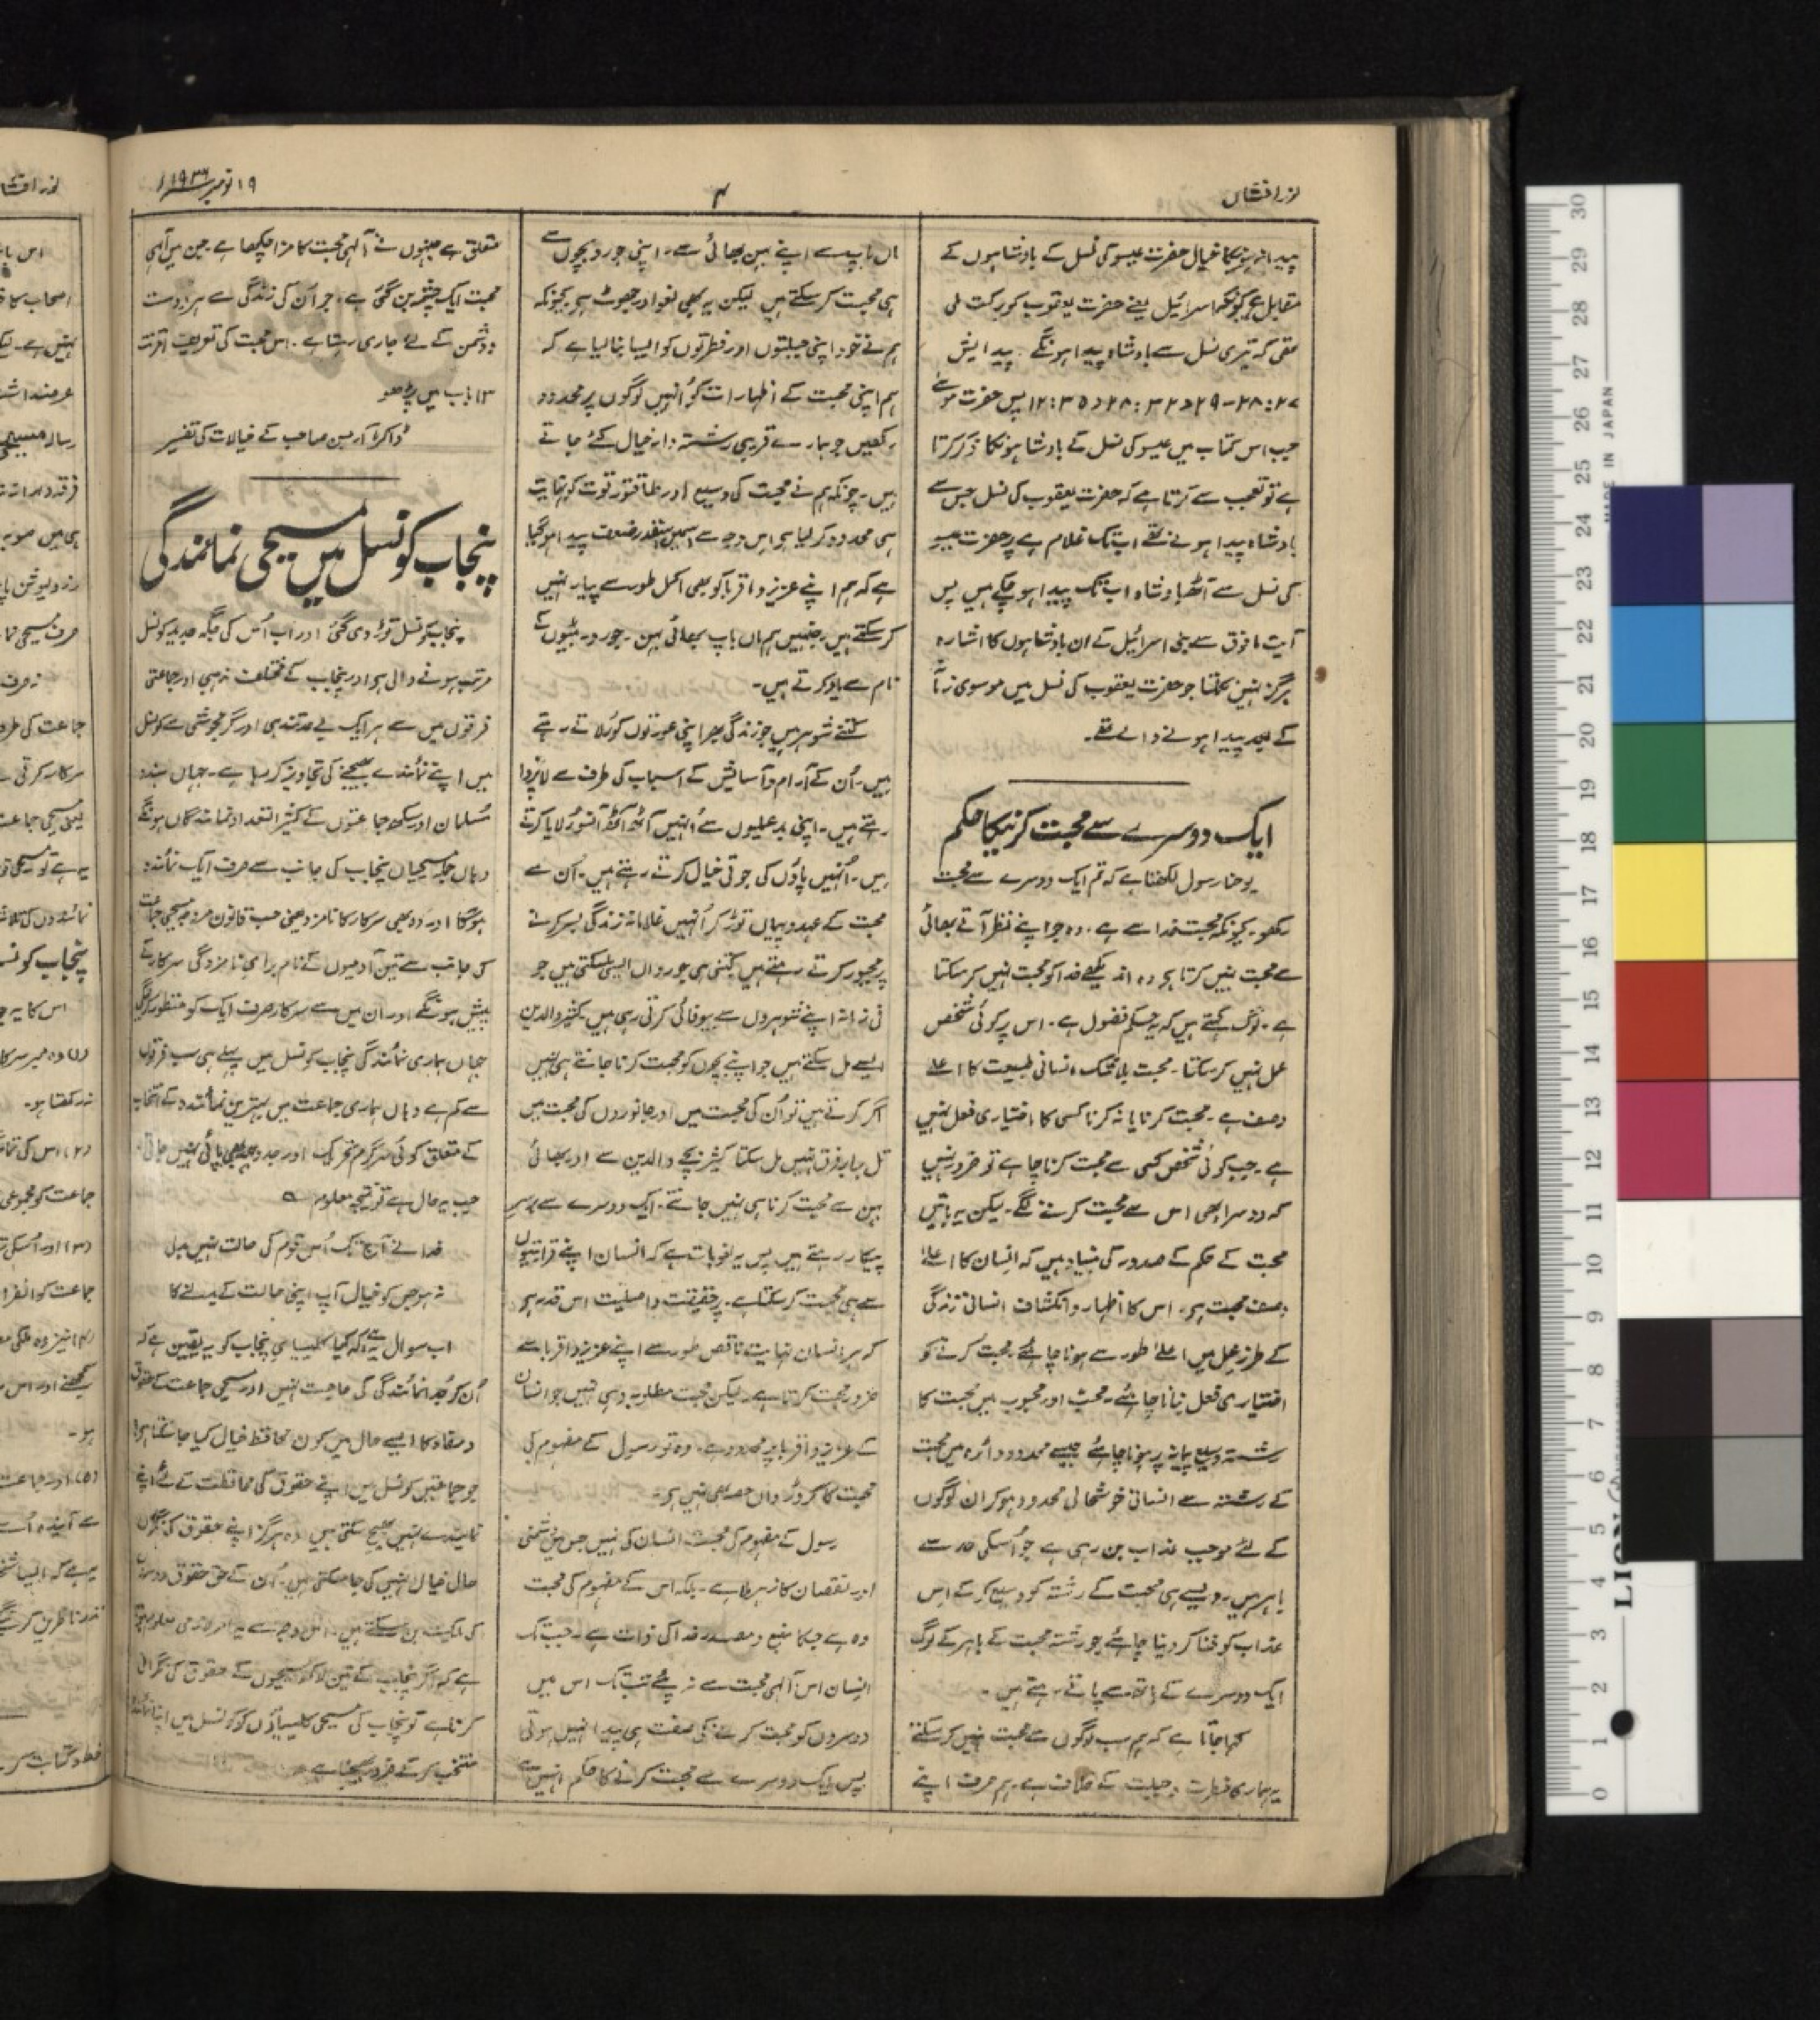 نور افشاں
۴
۱۹ نومبر
پیدا ہونیکا خیال حضرت عیسو کی نسل کے بادشاہوں کے
مقابل ہے کیونکہ اسرائیل یعنے حضرت یعقوب کو برکت ملی
تھی کہ تیری نسل سے بادشاہ پیدا ہونگے۔ پیدایش
پس حضرت موسےٰ
جب اس کتاب میں عیسو کی نسل کے بادشاہونکا ذکر کرتا
ہے تو تعجب سے کرتا ہے کہ حضرت یعقوب کی نسل جس سے
بادشاہ پیدا ہونے تھے اب تک غلام ہے پر حضرت عیسو
کی نسل سے آٹھ بادشاہ اب تک پیدا ہو چکے ہیں پس
آیت مافوق سے بنی اسرائیل کے ان بادشاہوں کا اشارہ
ہرگز نہیں نکلتا جو حضرت یعقوب کی نسل میں موسوی زمانہ
کے بعد پیدا ہونے والے تھے۔
ایک دوسرے سے محبت کرنیکا حکم
یوحنا رسول لکھتا ہے کہ تم ایک دوسرے سے محبت
رکھو۔ کیونکہ محبت خدا سے ہے۔ وہ جو اپنے نظر آتے بھائی
سے محبت نہیں کرتا ہو وہ اندیکھے خدا کو محبت نہیں کر سکتا
ہے۔ لوگ کہتے ہیں کہ یہ حکم فضول ہے۔ اس پر کوئی شخص
عمل نہیں کر سکتا۔ محبت بلا شک انسانی طبیعت کا اعلےٰ
وصف ہے۔ محبت کرنا یا نہ کرنا کسی کا اختیاری فعل نہیں
ہے۔ جب کوئی شخص کسی سے محبت کرنا چاہے تو ضرور نہیں
کہ دوسرا بھی اس سے محبت کرنے لگے۔ لیکن یہ باتیں
محبت کے حکم کے صدور کی بنیاد ہیں کہ انسان کا اعلےٰ
وصف محبت ہو۔ اس کا اظہار و انکشاف انسانی زندگی
کے طرز عمل میں اعلےٰ طور سے ہونا چاہئے۔ محبت کرنے کو
اختیاری فعل بنانا چاہئے۔ محب اور محبوب میں محبت کا
رشتہ وسیع پیمانہ پر ہونا چاہئے جیسے محدود دائرہ میں محبت
کے رشتہ سے انسانی خوشحالی محدود ہو کر ان لوگوں
کے لئے موجب عذاب بن رہی ہے جو اسکی حد سے
باہر ہیں۔ ویسے ہی محبت کے رشتہ کو وسیع کر کے اس
عذاب کو فنا کر دینا چاہئے جو رشتہ محبت کے باہر کے لوگ
ایک دوسرے کے ہاتھ سے پاتے رہتے ہیں۔
کہا جاتا ہے کہ ہم سب لوگوں سے محبت نہیں کر سکتے
یہ ہماری فطرت و جبلت کے خلاف ہے۔ ہم صرف اپنے
ماں باپ سے اپنے بہن بھائی سے۔ اپنی جورو بچوں سے
ہی محبت کر سکتے ہیں لیکن یہ بھی لغو اور جھوٹ ہو۔ کیونکہ
ہم نے خود اپنی جبلتوں اور فطرتوں کو ایسا بنا لیا ہے کہ
ہم اپنی محبت کے اظہارات کو انہیں لوگوں پر محدود
رکھیں جو ہمارے قریبی رشتہ دار خیال کئے جاتے
ہیں۔ چونکہ ہم نے محبت کی وسیع اور طاقتور قوت کو نہایت
ہی محدود کر لیا ہو اس وجہ سے اسمیں اسقدر ضعف پیدا ہو گیا
ہے کہ ہم اپنے عزیز و اقربا کو بھی اکمل طور سے پیار نہیں
کر سکتے ہیں جنہیں ہم ماں باپ بھائی بہن۔ جورو۔ بیٹوں کے
نام سے یاد کرتے ہیں۔
کتنے شوہر ہیں جو زندگی بھر اپنی عورتوں کو رلاتے رہتے
ہیں۔ اُن کے آرام و آسایش کے اسباب کی طرف سے لاپروا
رہتے ہیں۔ اپنی بدعملیوں سے اُنہیں آٹھ آٹھ آنسو رُلایا کرتے
ہیں۔ اُنہیں پاؤں کی جوتی خیال کرتے رہتے ہیں۔ اُن سے
محبت کے عہد و پیماں توڑ کر اُنہیں غلامانہ زندگی بسر کرنے
پر مجبور کرتے رہتے ہیں کتنی ہی جورواں ایسی مل سکتی ہیں جو
فی زمانہ اپنے شوہروں سے بیوفائی کرتی رہی ہیں کثیر والدین
ایسے مل سکتے ہیں جو اپنے بچوں کو محبت کرنا جانتے ہی نہیں
اگر کرتے ہیں تو اُن کی محبت میں اور جانوروں کی محبت میں
تل بھر فرق نہیں مل سکتا کثیر بچے والدین سے اور بھائی
بہن سے محبت کرنا ہی نہیں جانتے۔ ایک دوسرے سے برسر
پیکار رہتے ہیں پس یہ لغو بات ہے کہ انسان اپنے قرابتیوں
سے ہی محبت کر سکتا ہے۔ پر حقیقت و اصلیت اس قدر ہو
کہ ہر انسان نہایت ناقص طور سے اپنے عزیز و اقربا سے
ضرور محبت کرتا ہے۔ لیکن محبت مطلوبہ وہی نہیں جو انسان
کے عزیز و اقربا پر محدود ہے۔ وہ تو رسول کے مفہوم کی
محبت کا کروڑواں حصہ بھی نہیں ہو۔
رسول کے مفہوم کی محبت انسان کی نہیں جس میں دشمنی
اور نقصان کا زہر ملا ہے۔ بلکہ اس کے مفہوم کی محبت
وہ ہے جسکا منبع و مصدر خدا کی ذات ہے۔ جب تک
انسان اس آلٰہی محبت سے نہ چلے تب تک اس میں
دوسروں کو محبت کرنے کی صفت ہی پیدا نہیں ہوتی
پس ایک دوسرے سے محبت کرنے کا حکم انہیں سے
متعلق ہے جنہوں نے آلٰہی محبت کا مزا چکھا ہے۔ جن میں آلٰہی
محبت ایک چشمہ بن گئی ہے۔ جو اُن کی زندگی سے ہر دوست
و دشمن کے لئے جاری رہتا ہے۔ اس محبت کی تعریف اقرنتی
۱۳ باب میں پڑھو
ڈاکٹر آرہسن صاحب کے خیالات کی تفسیر
پنجاب کونسل میں مسیحی نمائندگی
پنجاب کونسل توڑ دی گئی اور اب اُس کی جگہ جدید کونسل
مرتب ہونے والی ہو اور پنجاب کے مختلف مذہبی اور جماعتی
فرقوں میں سے ہر ایک بڑی تندہی اور گرمجوشی سے کونسل
میں اپنے نمائندے بھیجنے کی تجاویز کر رہا ہے۔ جہاں ہندو
مسلمان اور سکھ جماعتوں کے کثیر التعداد نمائندگان ہونگے
وہاں جملہ مسیحیان پنجاب کی جانب سے صرف ایک نمائندہ
ہوگا اور وہ بھی سرکار کا نامزد یعنی حسب قانون مروجہ مسیحی جماعت
کی جانب سے تین آدمیوں کے نام برائے نامزدگی سرکار کے
پیش ہونگے اور ان میں سے سرکار صرف ایک کو منظور کریگی
جہاں ہماری نمائندگی پنجاب کونسل میں پہلے ہی سب فرقوں
سے کم ہے وہاں ہماری جماعت میں بہترین نمائندہ کے انتخاب
کے متعلق کوئی سرگرم تحریک اور جدوجہد بھی پائی نہیں جاتی۔
جب یہ حال ہے تو نتیجہ معلوم ؎
خدا نے آج تک اُس قوم کی حالت نہیں بدلی
نہ ہو جس کو خیال آپ اپنی حالت کے بدلنے کا
اب سوال یہ ہے کہ کیا کلیسیائے پنجاب کو یہ یقین ہے کہ
اُن کو جُدا نمائندگی کی حاجت نہیں اور مسیحی جماعت کے حقوق
و مفاد کا ایسے حال میں کون محافظ خیال کیا جا سکتا ہو۔
جو جماعتیں کونسل میں اپنے حقوق کی محافظت کے لئے اپنے
نمایندے نہیں بھیج سکتی ہیں وہ ہرگز اپنے حقوق کی نگراں
حال خیال نہیں کی جا سکتی ہیں۔ اُن کے حق حقوق دوسروں
کی ملکیت بن سکتے ہیں۔ اس وجہ سے یہ امر لازمی معلوم ہوتا
ہے کہ اگر پنجاب کے تین لاکھ مسیحیوں کے حقوق کی نگرانی
کرنا ہے تو پنجاب کی مسیحی کلیسیاؤں کو کونسل میں اپنا نمائندہ
منتخب کر کے ضرور بھیجنا ہے۔